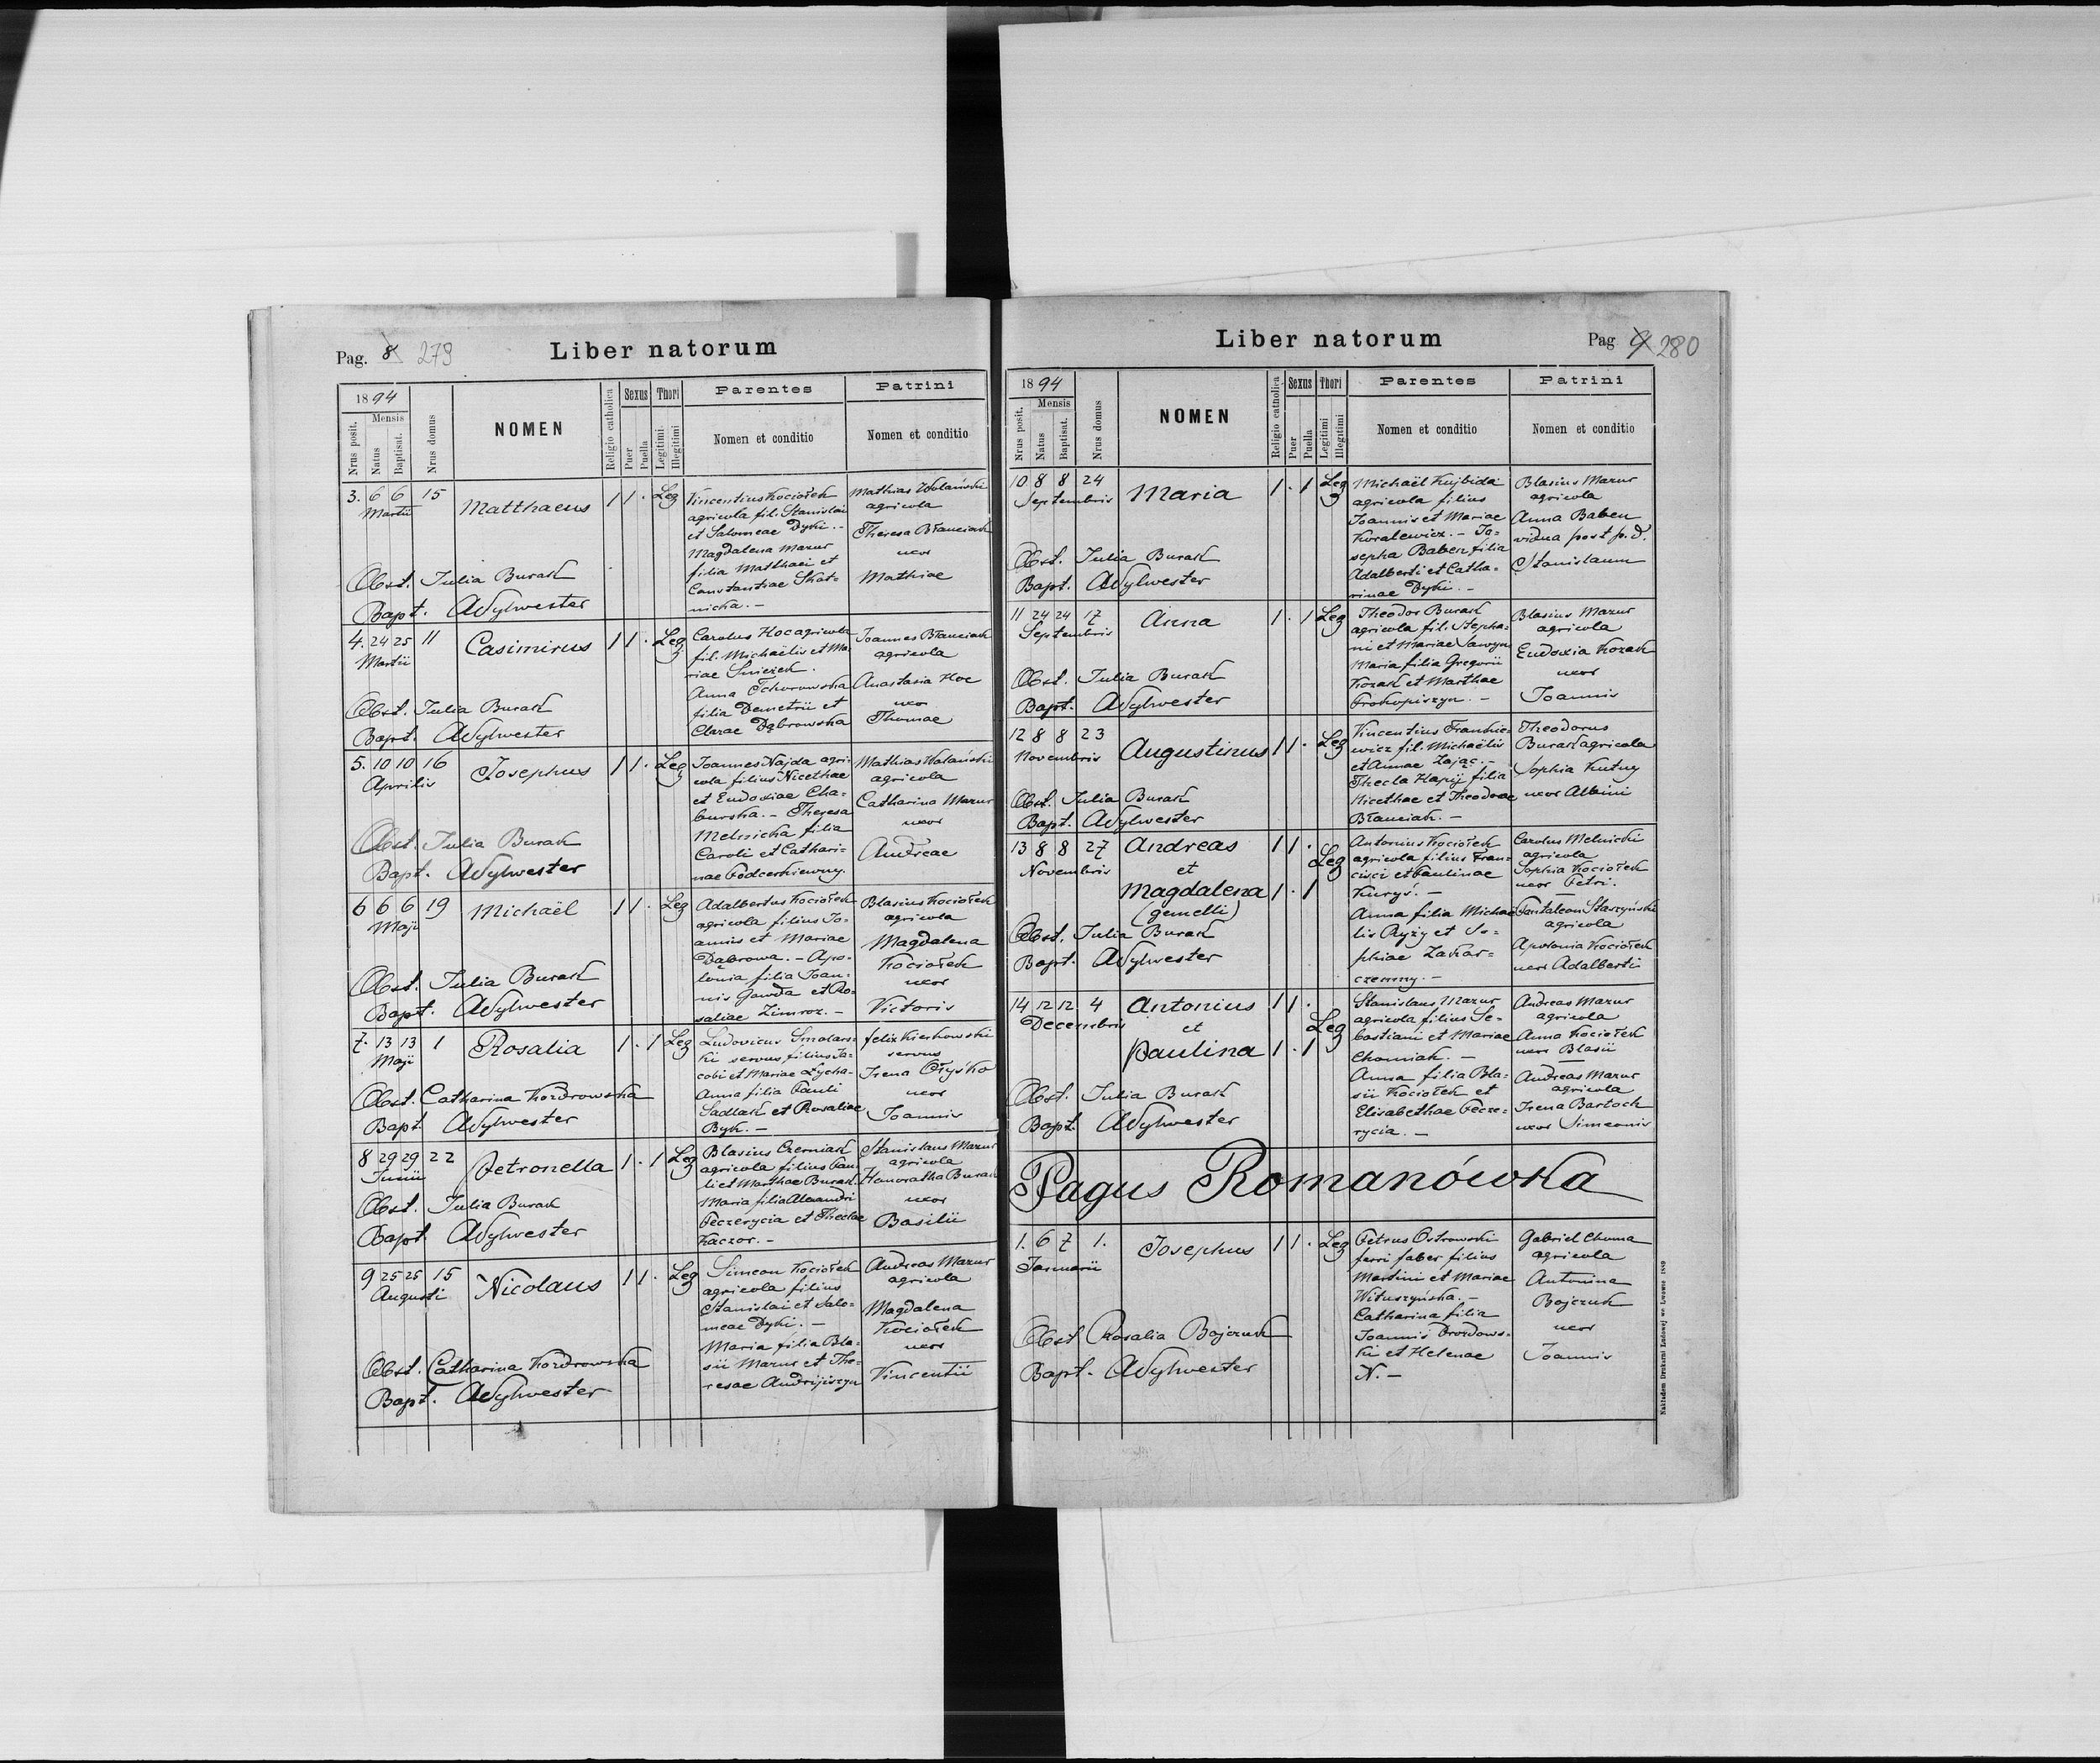 Pag. 8 279
Liber natorum
1894
Mensis
Nrus posit.
Natus
Baptisat.
Nrus domus
NOMEN
Religio catholica
Sexus
Puer
Puella
Thori
Legitimi
Illegitimi
Parentes
Nomen et conditio
Patrini
Nomen et conditio
3. 6 6 15 Matthaeus 1 1 . Leg
Martii
Vincentius Kociołek
agricola fil. Stanislai
et Salomeae Dyki. -
Magdalena Mazur
filia Matthaei et
Constantiae Skot-
nicka. -
Mathias Wolański
agricola
Theresa Błauciak
uxor
Mathiae
Obst. Julia Burak
Bapt. ASylwester
4. 24 25 11 Casimirus 1 1 . Leg
Martii
Carolus Hoc agricola
fil. Michaëlis et Ma-
riae Śnieżek.
Anna Tchorowska
filia Demetrii et
Clarae Dąbrowska
Joannes Błauciak
agricola
Anastasia Hoc
uxor
Thomae
Obst. Julia Burak
Bapt. ASylwester
5. 10 10 16 Josephus 1 1 . Leg
Aprilis
Joannes Najda agri-
cola filius Nicethae
et Eudoxiae Cha-
burska. - Theresa
Melnicka filia
Caroli et Cathari-
nae Podcerkiewny.
Mathias Wolański
agricola
Catharina Mazur
uxor
Andreae
Obst. Julia Burak
Bapt. ASylwester
6 6 6 19 Michaël 1 1 . Leg
Maji
Adalbertus Kociołek
agricola filius Jo-
annis et Mariae
Dąbrowa. - Apo-
lonia filia Joan-
nis Gawda et Ro-
saliae Zimroz. -
Blasius Kociołek
agricola
Magdalena
Kociołek
uxor
Victoris
Obst. Julia Burak
Bapt. ASylwester
7. 13 13 1 Rosalia 1 . 1 Leg
Maji
Ludovicus Smolars-
ki servus filius Ja-
cobi et Mariae Lycha-
Anna filia Pauli
Sadlak et Rosaliae
Byk. -
Felix Kierkowski
servus
Irena Ołyśko
uxor
Joannis
Obst. Catharina Kozdrowska
Bapt ASylwester
8 29 29 22 Petronella 1 . 1 Leg
Junii
Blasius Czerniak
agricola filius Pau-
li et Marthae Burak.
Maria filia Alexandri
Peczerycia et Theclae
Kaczor. -
Stanislaus Mazur
agricola
Honoratha Burak
uxor
Basilii
Obst. Julia Burak
Bapt ASylwester
9 25 25 15 Nicolaus 1 1 . Leg
Augusti
Simeon Kociołek
agricola filius
Stanislai et Salo-
meae Dyki. -
Maria filia Bla-
sii Mazur et The-
resae Andrijiszyn
Andreas Mazur
agricola
Magdalena
Kociołek
uxor
Vincentii
Obst. Catharina Kozdrowska
Bapt. ASylwester
Liber natorum
Pag 9 280
1894
Mensis
Nrus posit.
Natus
Baptisat.
Nrus domus
NOMEN
Religio catholica
Sexus
Puer
Puella
Thori
Legitimi
Illegitimi
Parentes
Nomen et conditio
Patrini
Nomen et conditio
10 8 8 24 Maria 1 . 1 Leg
Septembris
Michaël Kujbida
agricola filius
Joannis et Mariae
Kowalewicz. - Jo-
sepha Baben filia
Adalberti et Catha-
rinae Dyki. -
Blasius Mazur
agricola
Anna Baben
vidua post p. d.
Stanislaum
Obst. Julia Burak
Bapt. ASylwester
11 24 24 17 Anna 1 . 1 Leg
Septembris
Theodor Burak
agricola fil. Stepha-
ni et Mariae Sawryn
Maria filia Gregorii
Kozak et Marthae
Prokopiszyn. -
Blasius Mazur
agricola
Eudoxia Kozak
uxor
Joannis
Obst. Julia Burak
Bapt. ASylwester
12 8 8 23 Augustinus 1 1 . Leg
Novembris
Vincentius Frankie-
wicz fil. Michaëlis
et Annae Zając. -
Thecla Hapij filia
Nicethae et Theodorae
Błauciak. -
Theodorus
Burak agricola
Sophia Kutny
uxor Albini
Obst. Julia Burak
Bapt. ASylwester
13 8 8 27 Andreas 1 1 .
Novembris
et
Leg
Magdalena 1 . 1
(gemelli)
Antonius Kociołek
agricola filius Fran-
cisci et Paulinae
Kuryś. -
Anna filia Michaë-
lis Ryży et So-
phiae Zakar-
czemny. -
Carolus Melnicki
agricola
Sophia Kociołek
uxor Petri.
Pantaleon Starzyński
agricola
Apolonia Kociołek
uxor Adalberti
Obst. Julia Burak
Bapt. ASylwester
14 12 12 4 Antonius 1 1 .
Decembris
et
Leg
Paulina 1 . 1
Stanislaus Mazur
agricola filius Se-
bastiani et Mariae
Chomiak. -
Anna filia Bla-
sii Kociołek et
Elisabethae Pecze-
rycia. -
Andreas Mazur
agricola
Anna Kociołek
uxor Blasii
Andreas Mazur
agricola
Irena Bartoch
uxor Simeonis
Obst. Julia Burak
Bapt. ASylwester
Pagus Romanówka
1. 6 7 1. Josephus 1 1 . Leg
Januarii
Petrus Ostrowski
ferri faber filius
Martini et Mariae
Wituszyńska. -
Catharina filia
Joannis Drozdows-
ki et Helenae
N. -
Gabriel Choma
agricola
Antonina
Bojczuk
uxor
Joannis
Obst Rosalia Bojczuk
Bapt. ASylwester
Nakładem Drukarni Ludowej we Lwowie 1889